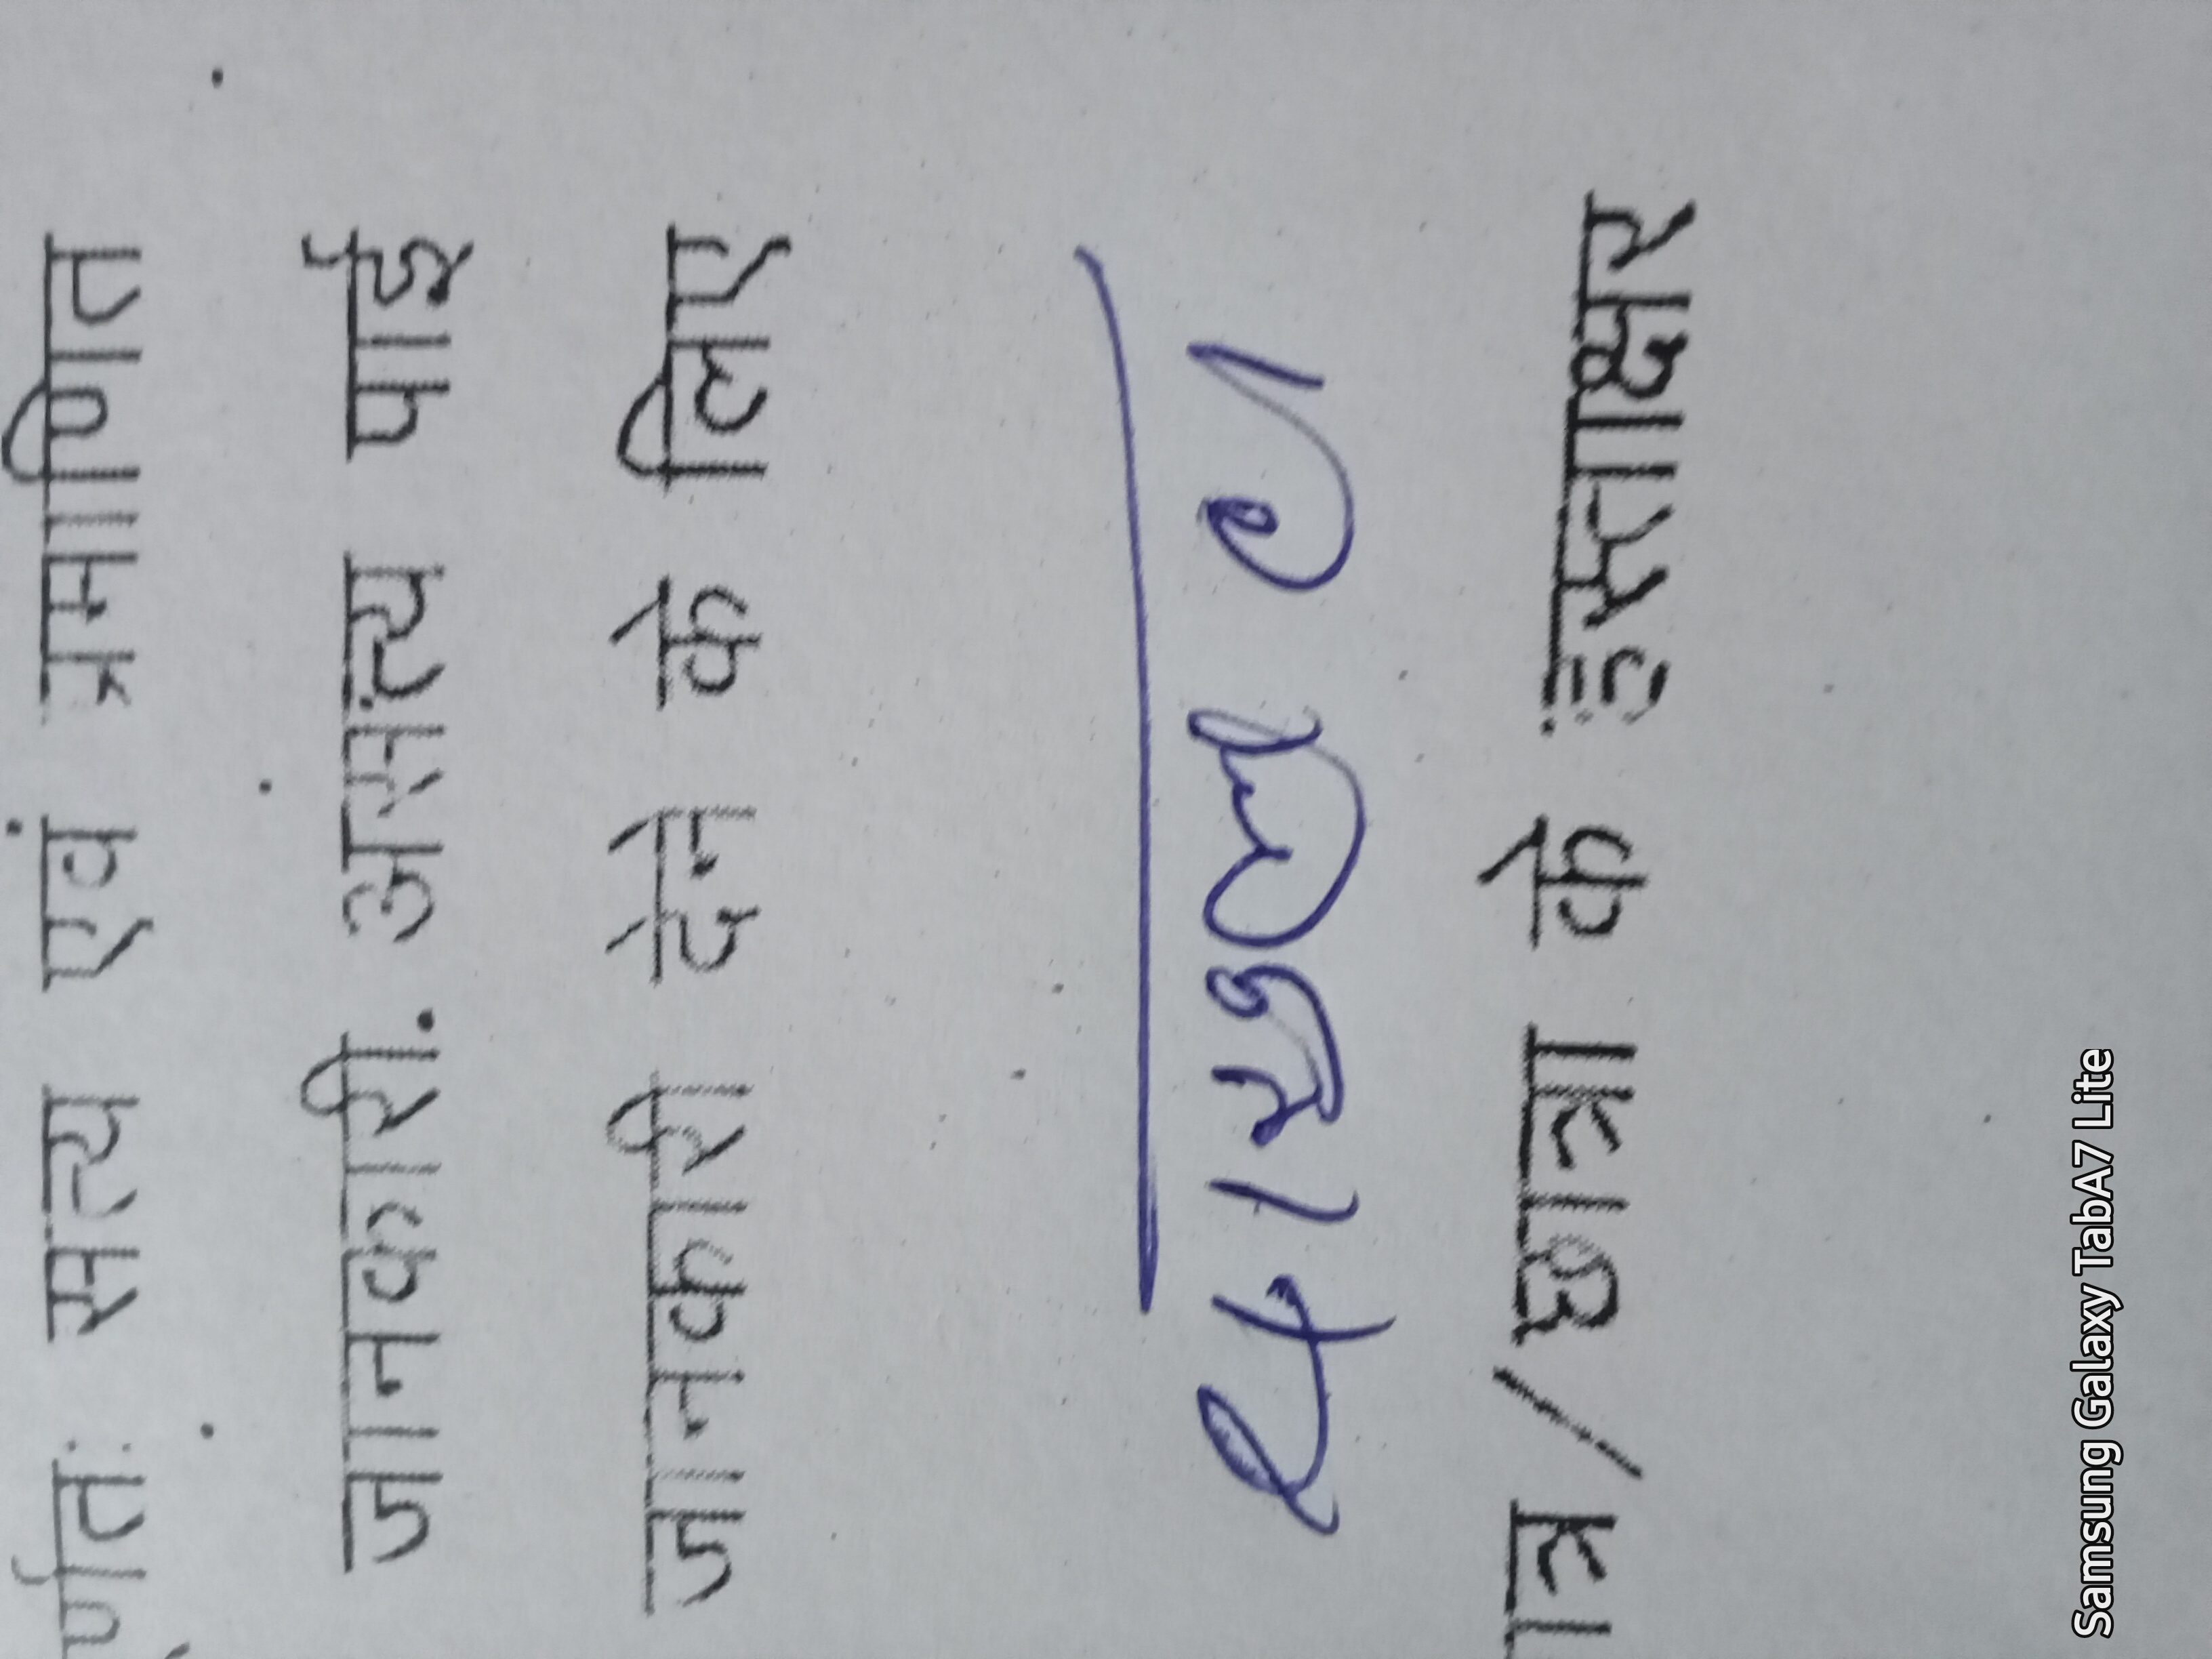 र्णतः सत्य एवं प्रमाणित
जानकारी. असंत्य पाई
जानकारी देने के लिए
ात्र / छात्रा के हस्ताक्षर
Samsung Galaxy TabA7 Lite